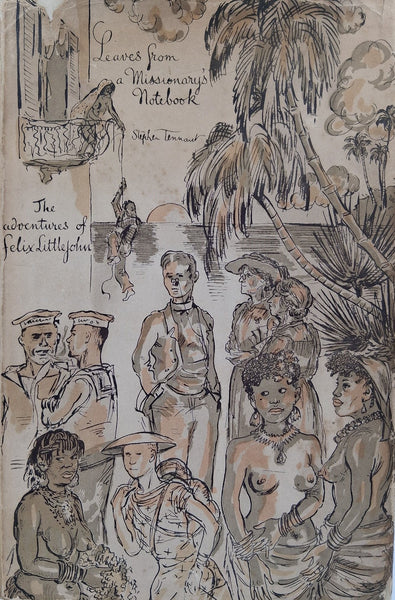 Leaves from
a Missionary's
Notebook
Stephen Tennant
The
adventures of
Felix Littlejohn